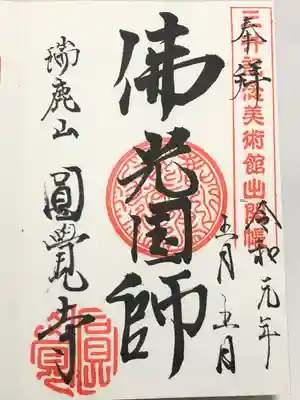 三井記念美術館出開帳
奉拜
令和元年
五月五日
佛光国師
瑞鹿山
圓覺寺